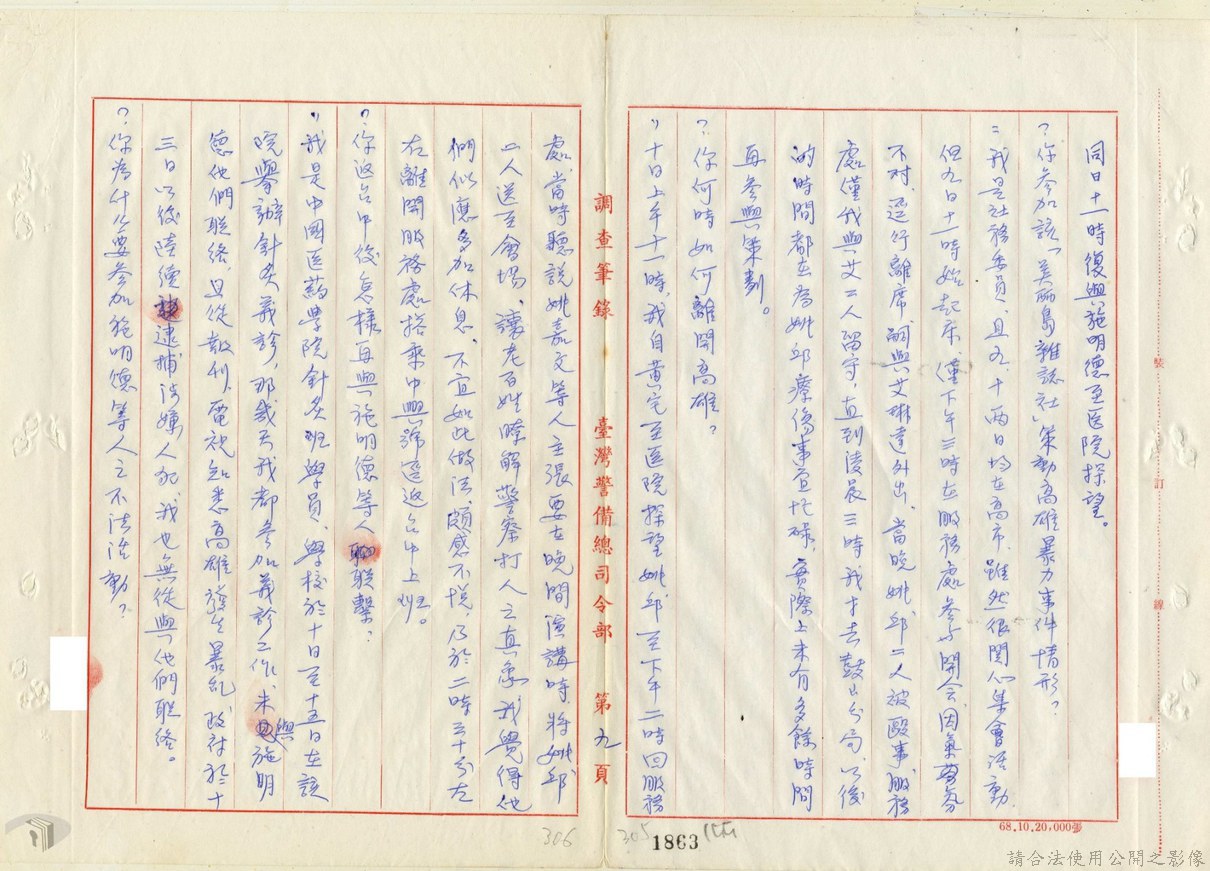 同日十一時復與施明德至医院探望。
？你參加該「美丽島雜誌社」策動高雄暴力事件情形？
：我是社務委員，且九、十兩日均在高市，雖然很関心集會活動，
但九日十一時始起床，僅下午三時在服務處參与開会，因氣氛
不对，逕行離席，嗣與艾琳達外出，當晚姚、邱二人被毆事，服務
處僅我與艾二人留守，直到淩晨三時我才去鼓山分局，以後
的時間都在為姚、邱療傷事宜忙碌，實際上未有多餘時間
再參與策劃。
？你何時如何離開高雄？
：十日上午十一時，我自黃宅至医院探望姚、邱，至下午二時回服務
調查筆錄　臺灣警備總司令部　第九頁
處，當時聽說姚嘉文等人主張要在晚間演講時，將姚、邱
二人送至會場，讓老百姓瞭解警察打人之真象，我覺得他
們似應多加休息，不宜如此做法，頗感不悅，乃於二時三十分左
右離開服務處搭乘中興號返返台中上班。
？你返台中後怎樣再與施明德等人聯繫？
：我是中國医葯學院針灸班學員，學校於十日至十五日在該
院舉辦針灸義診，那幾天我都參加義診工作，未與施明
德他們聯絡，且從報刊、電視知悉高雄發生暴乱，政府於十
三日以後陸續逮捕涉嫌人犯，我也無從與他們联絡。
？你為什么要參加施明德等人之不法活動？
裝
訂
線
68.10.20,000張
305
306
1863
請合法使用公開之影像